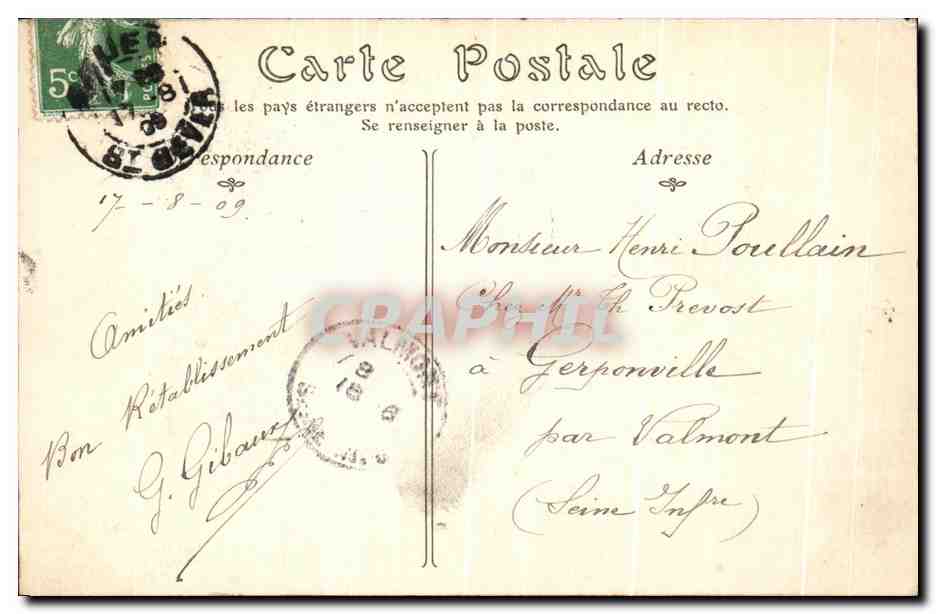 Carte Postale
les pays étrangers n'acceptent pas la correspondance au recto.
Se renseigner à la poste.
5c
respondance
Adresse
17 - 8 - 09
Amitiés
Bon Rétablissement
G. Gibaux
Monsieur Henri Poullain
Chez Mr Th Prevost
à Gerponville
par Valmont
(Seine Infre)
VALMONT
CPARAPHIL